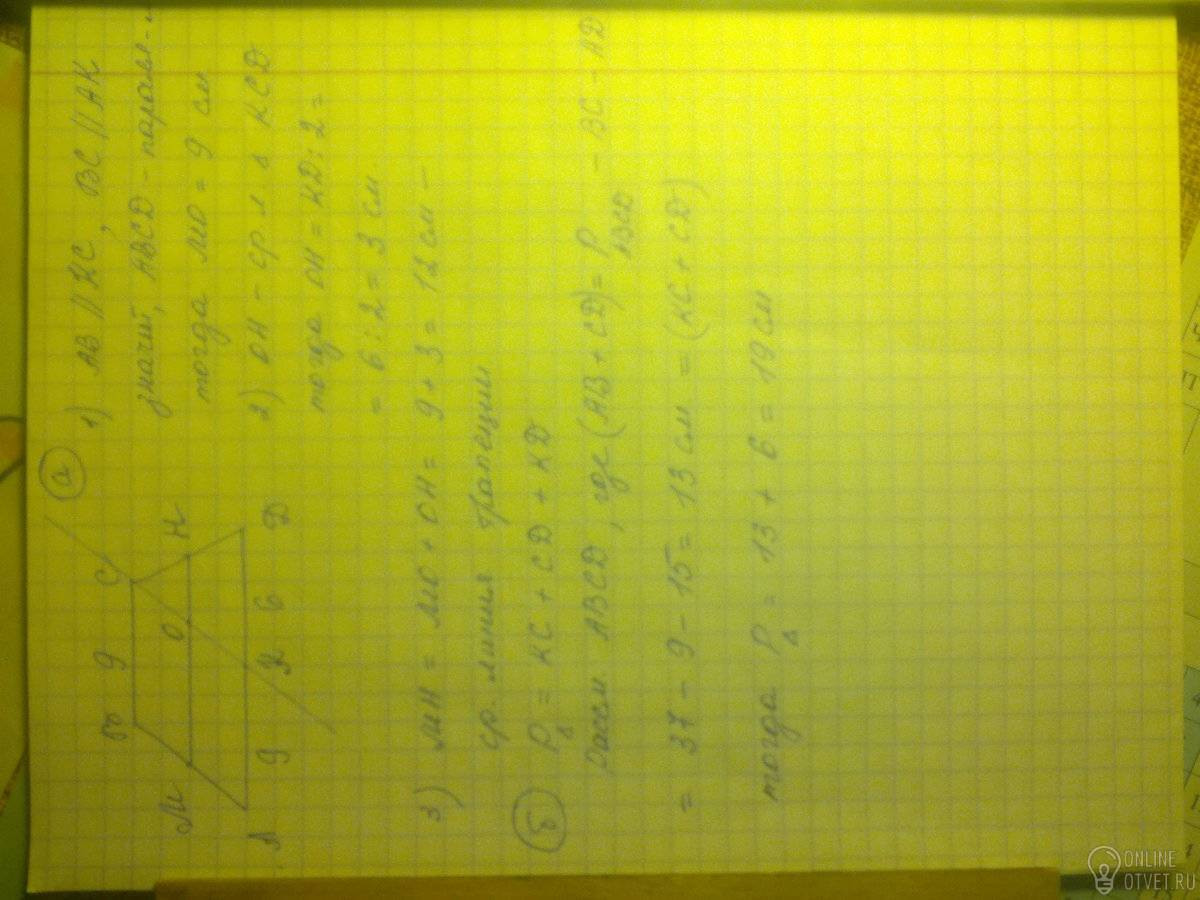 а) 1) AB || KC, BC || AK
значит, ABCD - паралл-м
тогда MO = 9 см
2) OH - ср л Δ KCD
тогда OH = KD : 2 =
= 6 : 2 = 3 см
3) MH = MO + OH = 9 + 3 = 12 см -
ср. линия трапеции
б) PΔ = KC + CD + KD
Рассм. ABCD, где (AB + CD) = P ABCD - BC - AD
= 37 - 9 - 15 = 13 см = (KC + CD)
тогда PΔ = 13 + 6 = 19 см
B 9 C
M O H
A 9 K 6 D
ONLINE
OTVET.RU